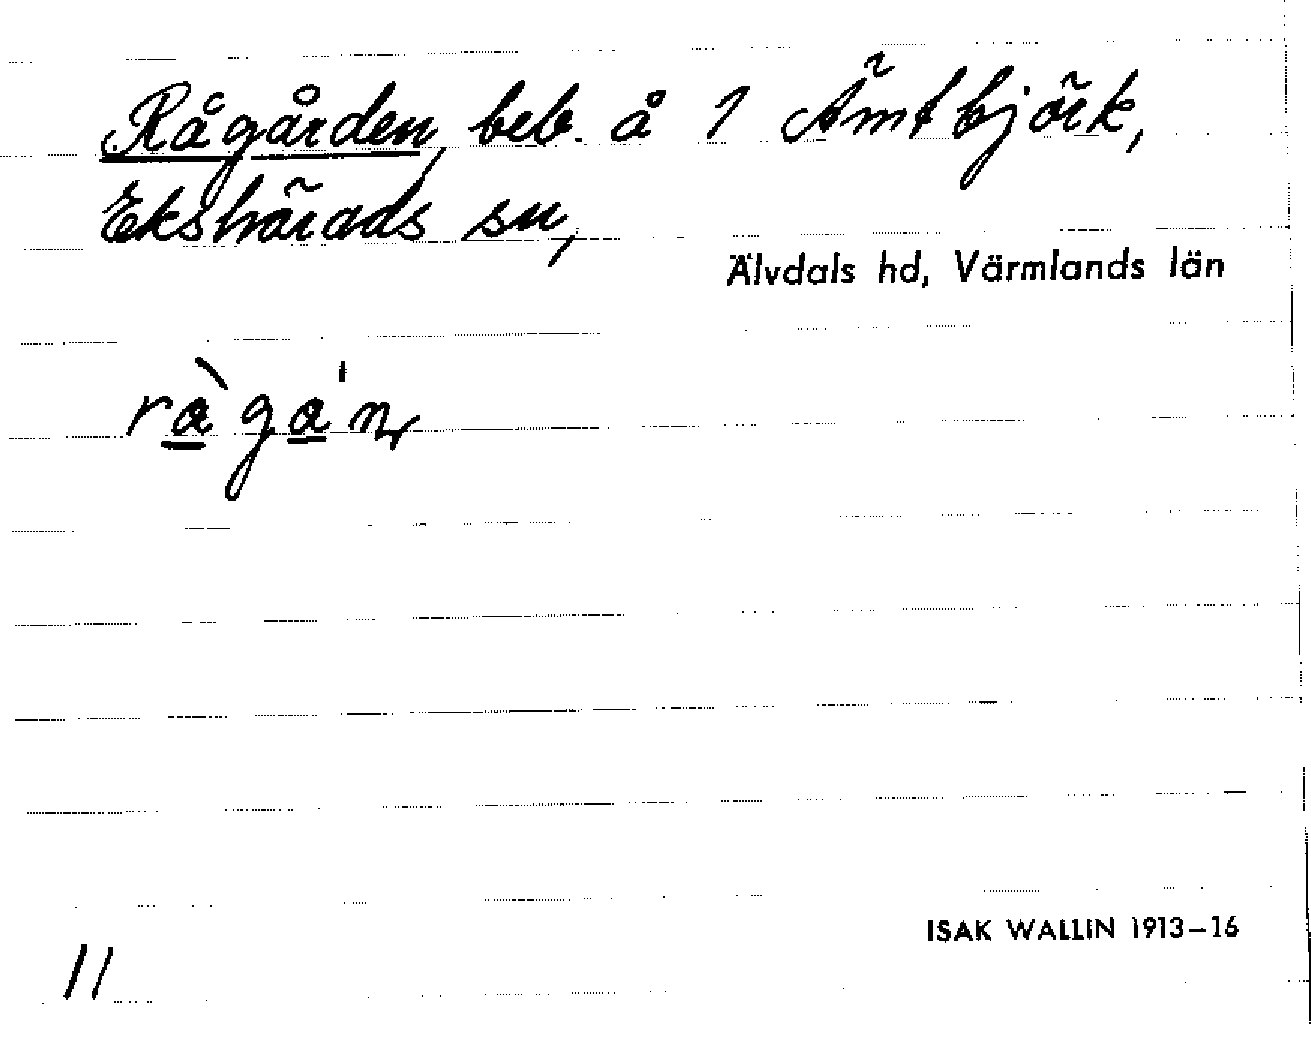 Rågården, beb. å 1 Ämtbjörk,
Ekshärads sn,
Älvdals hd, Värmlands län
rà̱ga̱'ɳ
ISAK WALLIN 1913–16
11